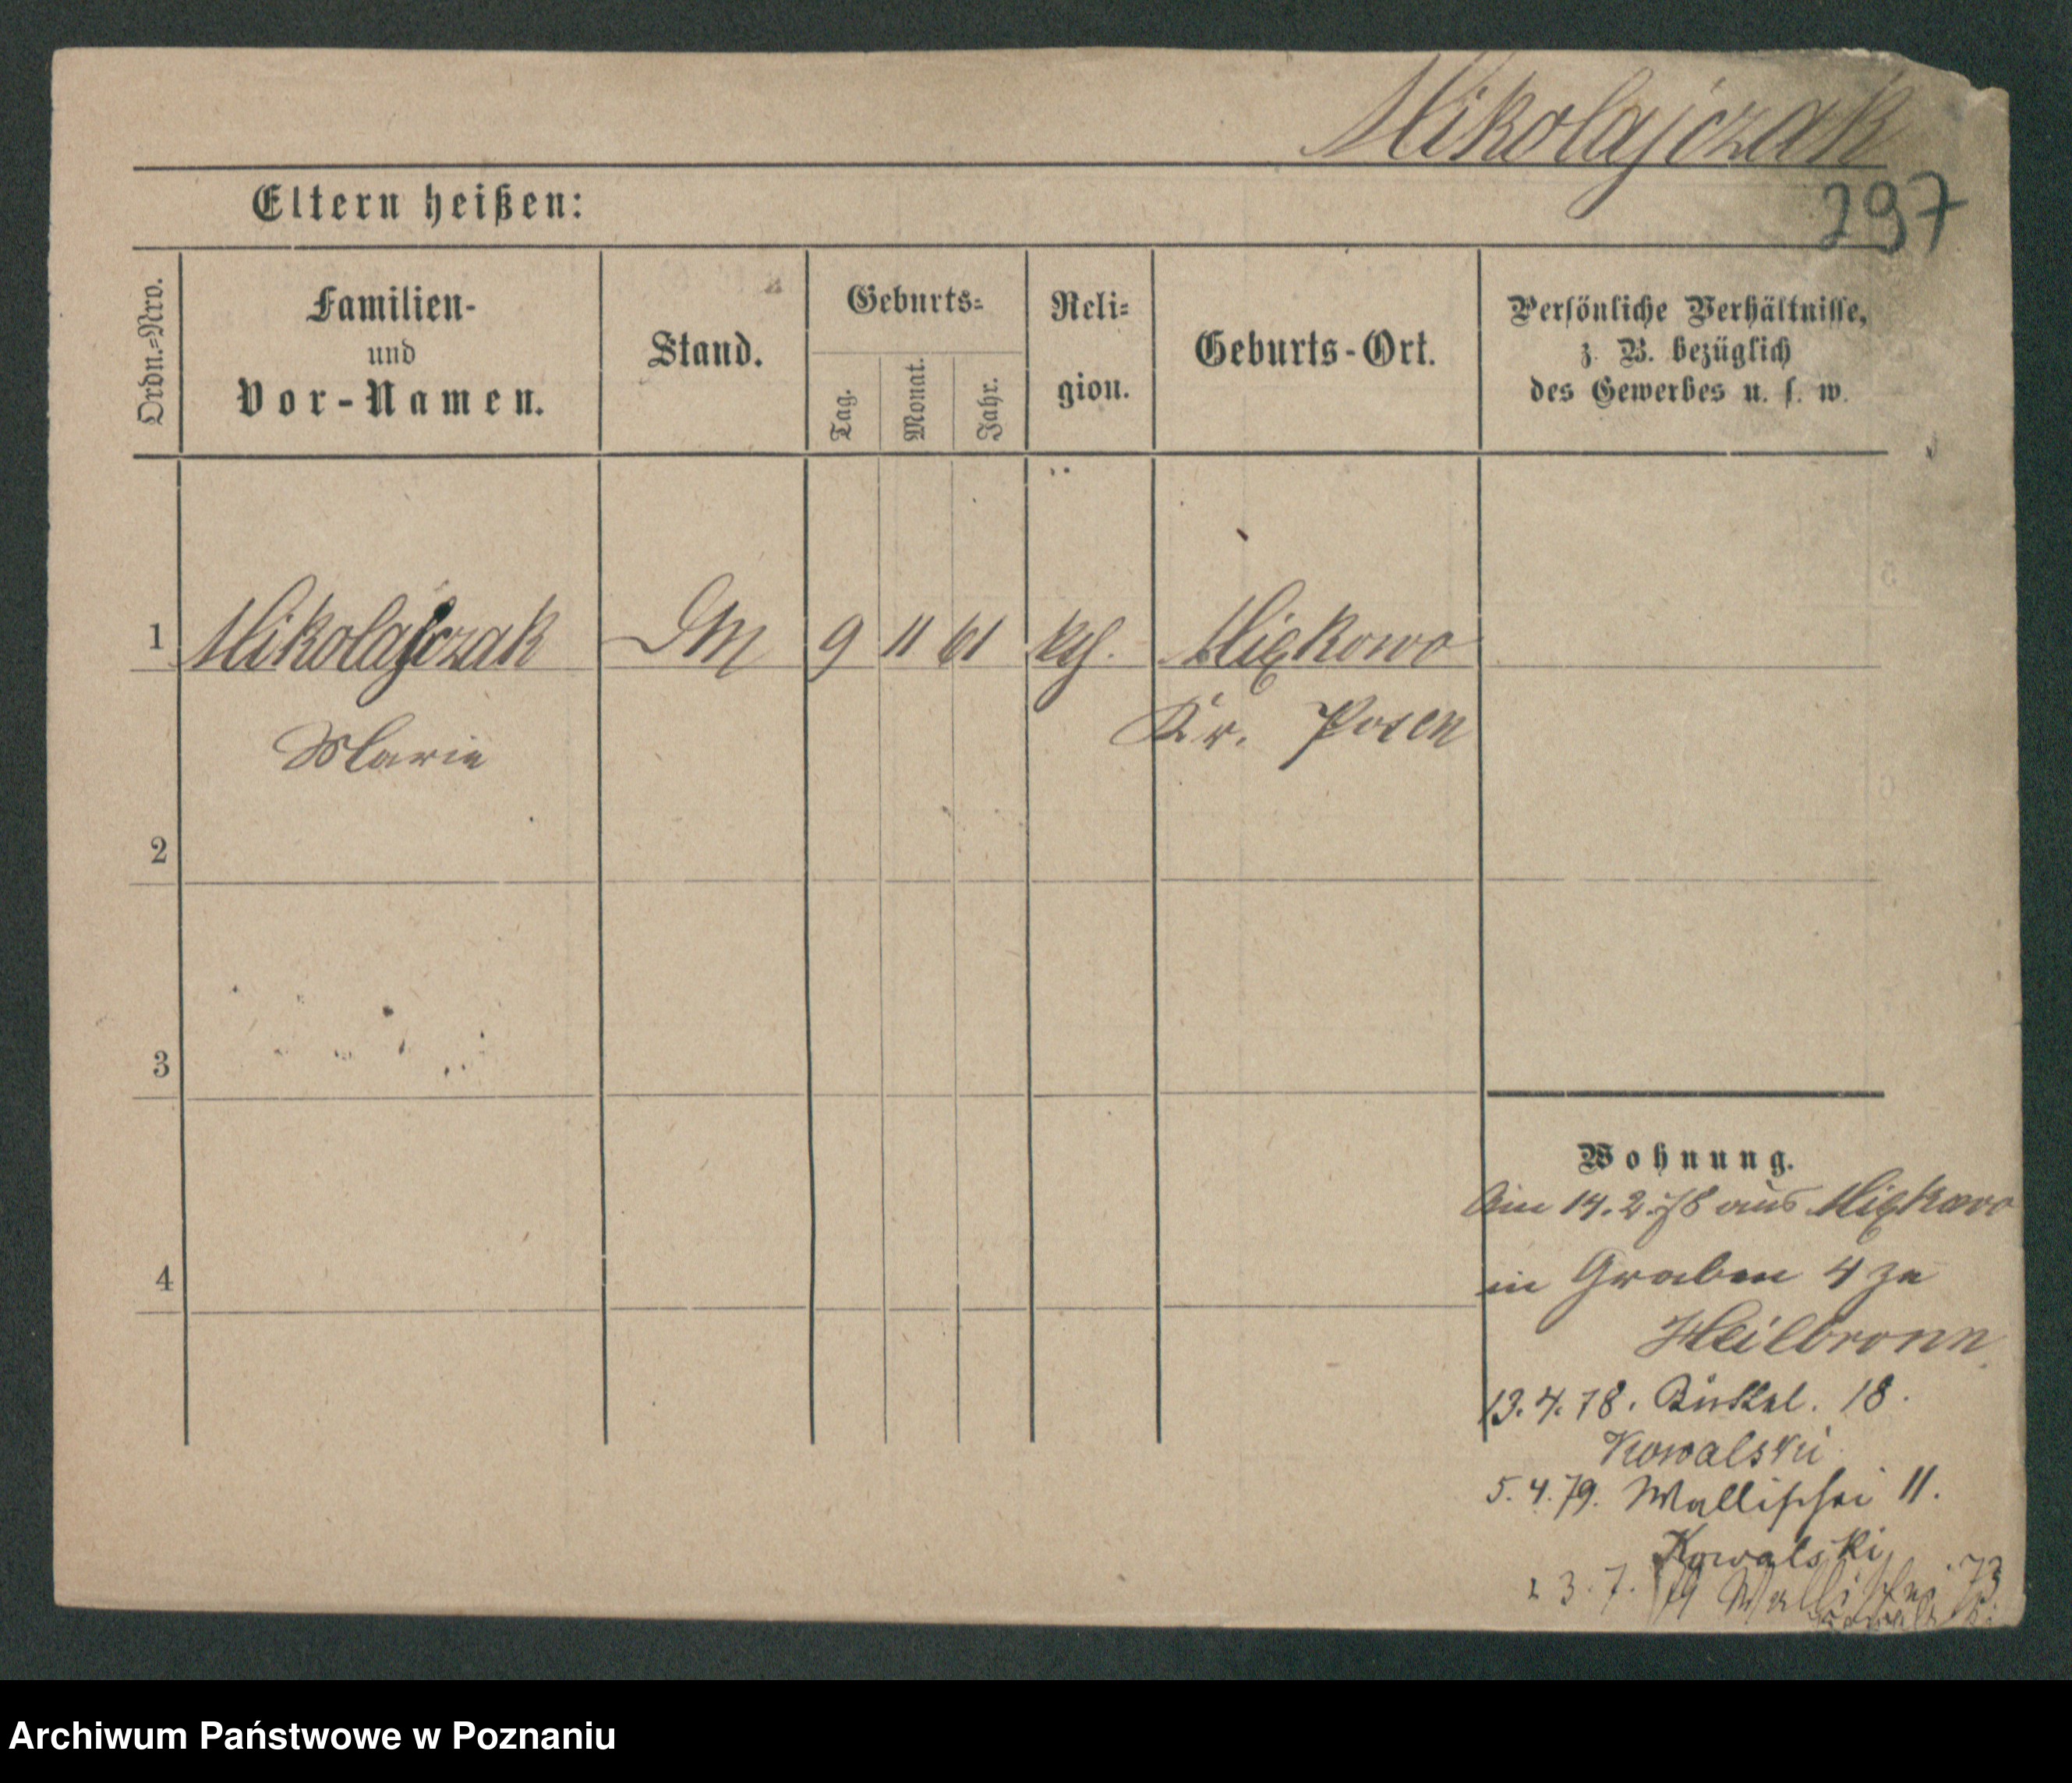 Mikolajczak
297
Eltern heißen:
Ordn.=Nro.
Familien-
und
Vor-Namen.
Stand.
Geburts=
Tag.
Monat.
Jahr.
Reli=
gion.
Geburts-Ort.
Persönliche Verhältnisse,
z. B. bezüglich
des Gewerbes u. s. w.
1 Mikolajczak DM 9 11 61 kth. Miękowo
Marie Kr. Posen
2
3
4
Wohnung.
Am 14.2.78 aus Miękowo
in Graben 4 zu
Heilbronn
13.4.78. Büttel. 18.
Kowalski
5.4.79. Wallischei 11.
Kowalski
23.7.79 Wallischei 73
Kowalski
Archiwum Państwowe w Poznaniu